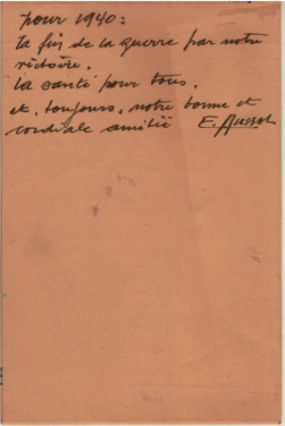 pour 1940:
la fin de la guerre par notre
victoire.
la santé pour tous,
et, toujours, notre bonne et
cordiale amitié E.